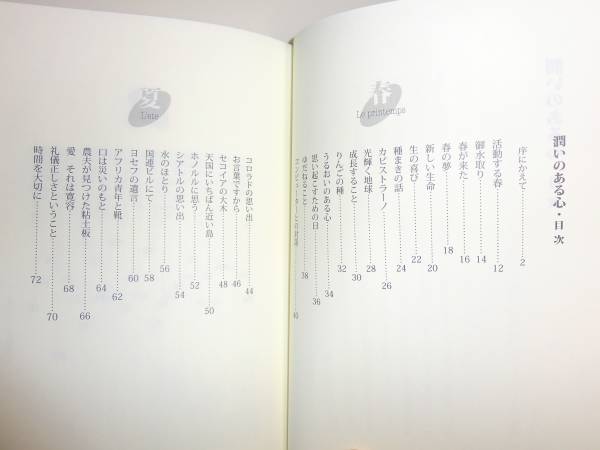 潤いのある心・目次
序にかえて……2
春
Le printemps
活動する春……12
御水取り……14
春が来た……16
春の夢……18
新しい生命……20
生の喜び……22
種まきの話……24
カピストラーノ……26
光輝く地球……28
成長すること……30
りんごの種……32
うるおいのある心……34
思い起こすための日……36
ゆだねること……38
夏
L'été
コロラドの思い出……44
お言葉ですから……46
セコイアの大木……48
天国にいちばん近い島……50
ホノルルに思う……52
シアトルの思い出……54
水のほとり……56
国連ビルにて……58
ヨセフの遺言……60
アフリカ青年と靴……62
口は災いのもと……64
農夫が見つけた粘土板……66
愛 それは寛容……68
礼儀正しさということ……70
時間を大切に……72